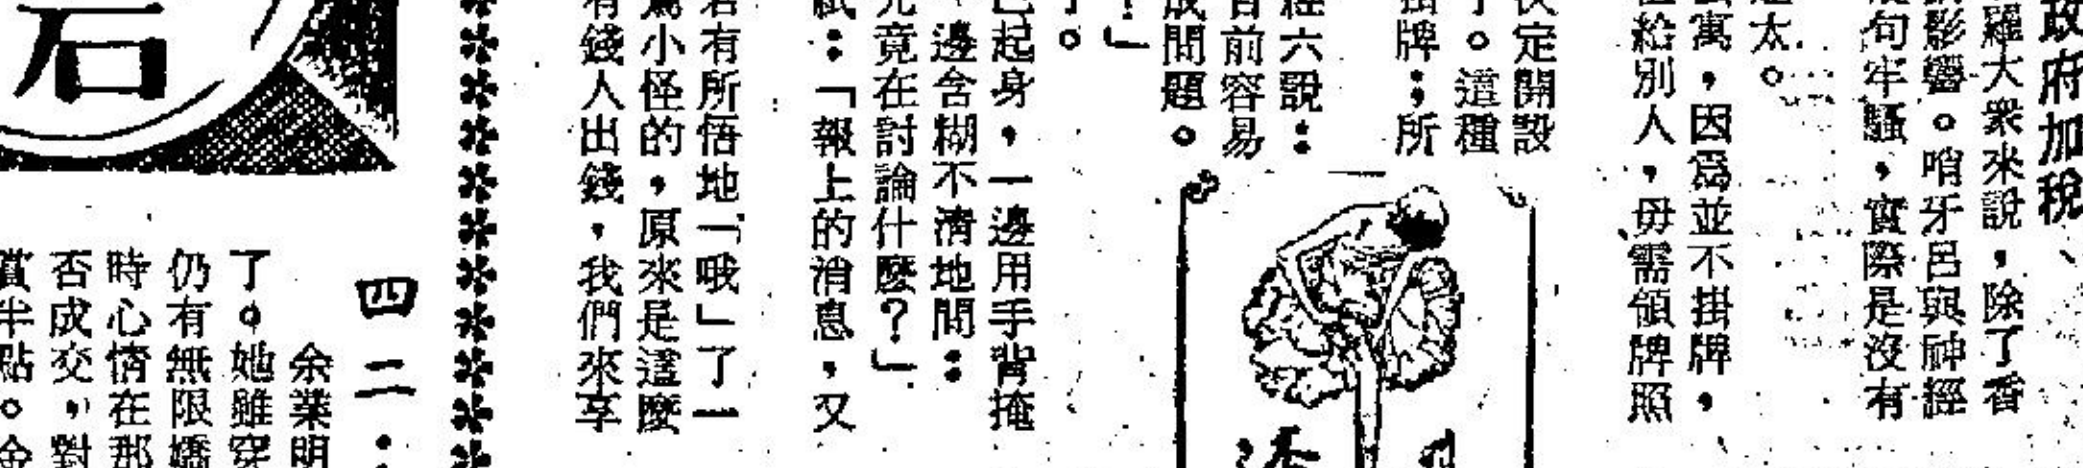 政府加稅
羅大衆來說，除了香
影響。哨牙呂與神經
句牢騷，實際是沒有
太。
寓，因爲並不掛牌，
給別人，毋需領牌照
決定開設
。這種
掛牌；所
經六說：
目前容易
成問題。
！」
。
已起身，一邊用手背掩
，邊含糊不清地問：
究竟在討論什麼？」
：「報上的消息，又
若有所悟地「哦」了一
小怪的，原來是這麼
有錢人出錢，我們來享
岩
四二．
余業明
了。她雖穿
仍有無限嬌
時心情在那
否成交，對
賞半點。金